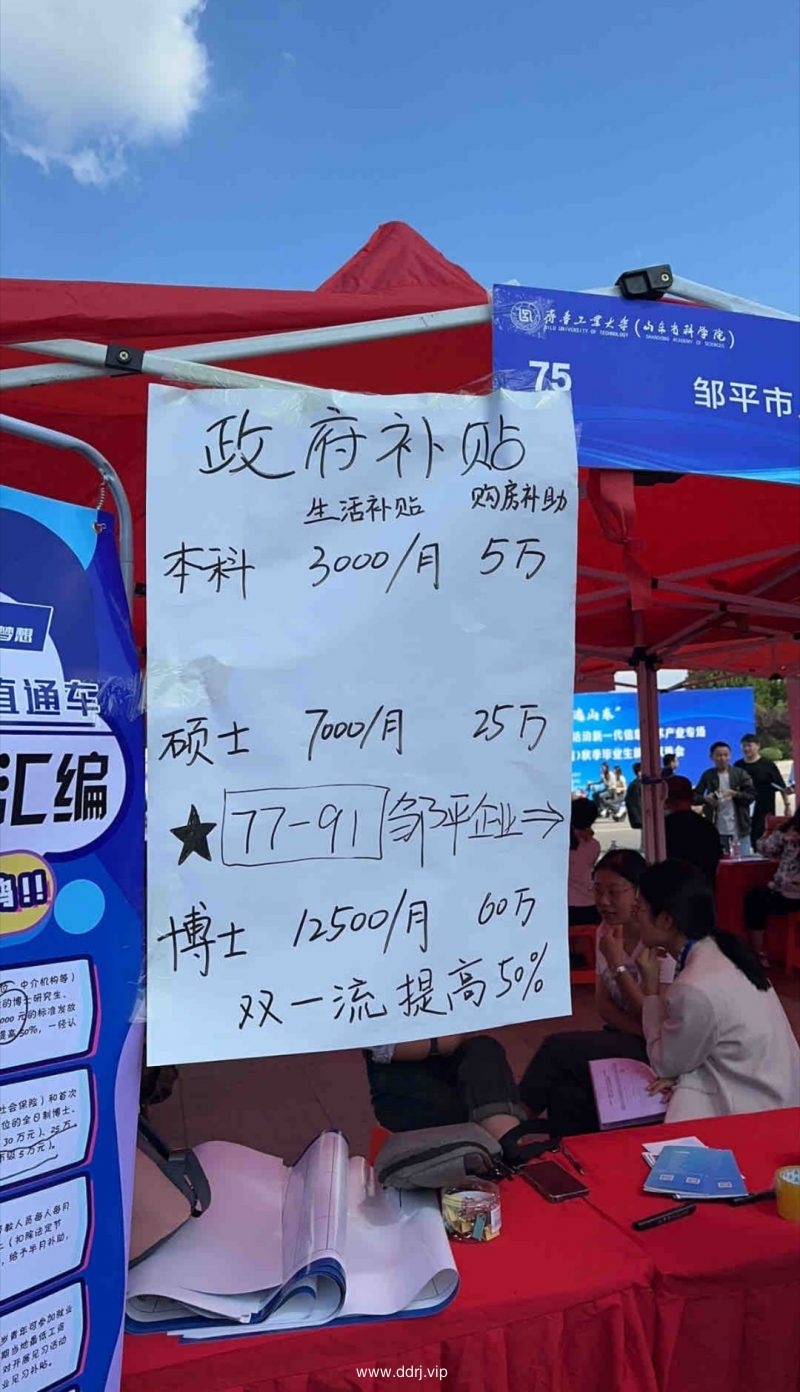 齐鲁工业大学(山东省科学院)
QILU UNIVERSITY OF TECHNOLOGY SHANDONG ACADEMY OF SCIENCES
75
邹平市
政府补贴
生活补贴 购房补助
本科 3000/月 5万
硕士 7000/月 25万
★ 77-91 邹平企业⇒
博士 12500/月 60万
双一流提高50%
梦想
直通车
汇编
中介机构等)
的博士研究生、
000元的标准发放
提高50%,一经认
社会保险)和首次
位的全日制博士、
30万元)、25万
5万元)。
教人员每人每月
(扣除法定节
,给予半月补助,
岁青年可参加就业
期当地最低工资
对开展见习活动
业见习补贴。
山东”
活动新一代信息技术产业专场
秋季毕业生
www.ddrj.vip